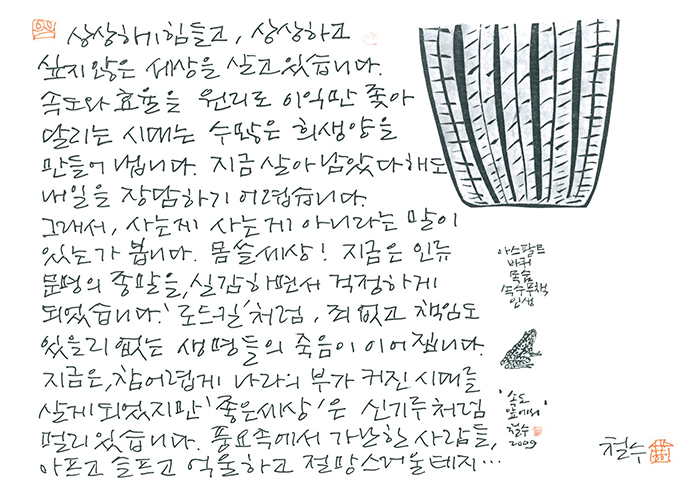 상상하기 힘들고, 상상하고
싶지 않은 세상을 살고 있습니다.
속도와 효율을 원리로 이익만 좇아
달리는 시대는 수많은 희생양을
만들어 냅니다. 지금 살아남았다 해도
내일을 장담하기 어렵습니다.
그래서, 사는게 사는게 아니라는 말이
있는가 봅니다. 몹쓸세상! 지금은 인류
문명의 종말을, 실감하면서 걱정하게
되었습니다. '로드킬'처럼, 죄 없고 책임도
있을리 없는 생명들의 죽음이 이어집니다.
지금은, 참 어렵게 나라의 부가 커진 시대를
살게 되었지만 '좋은세상'은 신기루처럼
멀리 있습니다. 풍요속에서 가난한 사람들,
아프고 슬프고 억울하고 절망스러울 테지...
아스팔트
바퀴
목숨
속수무책
인생
'속도
앞에서'
철수
2009
철수